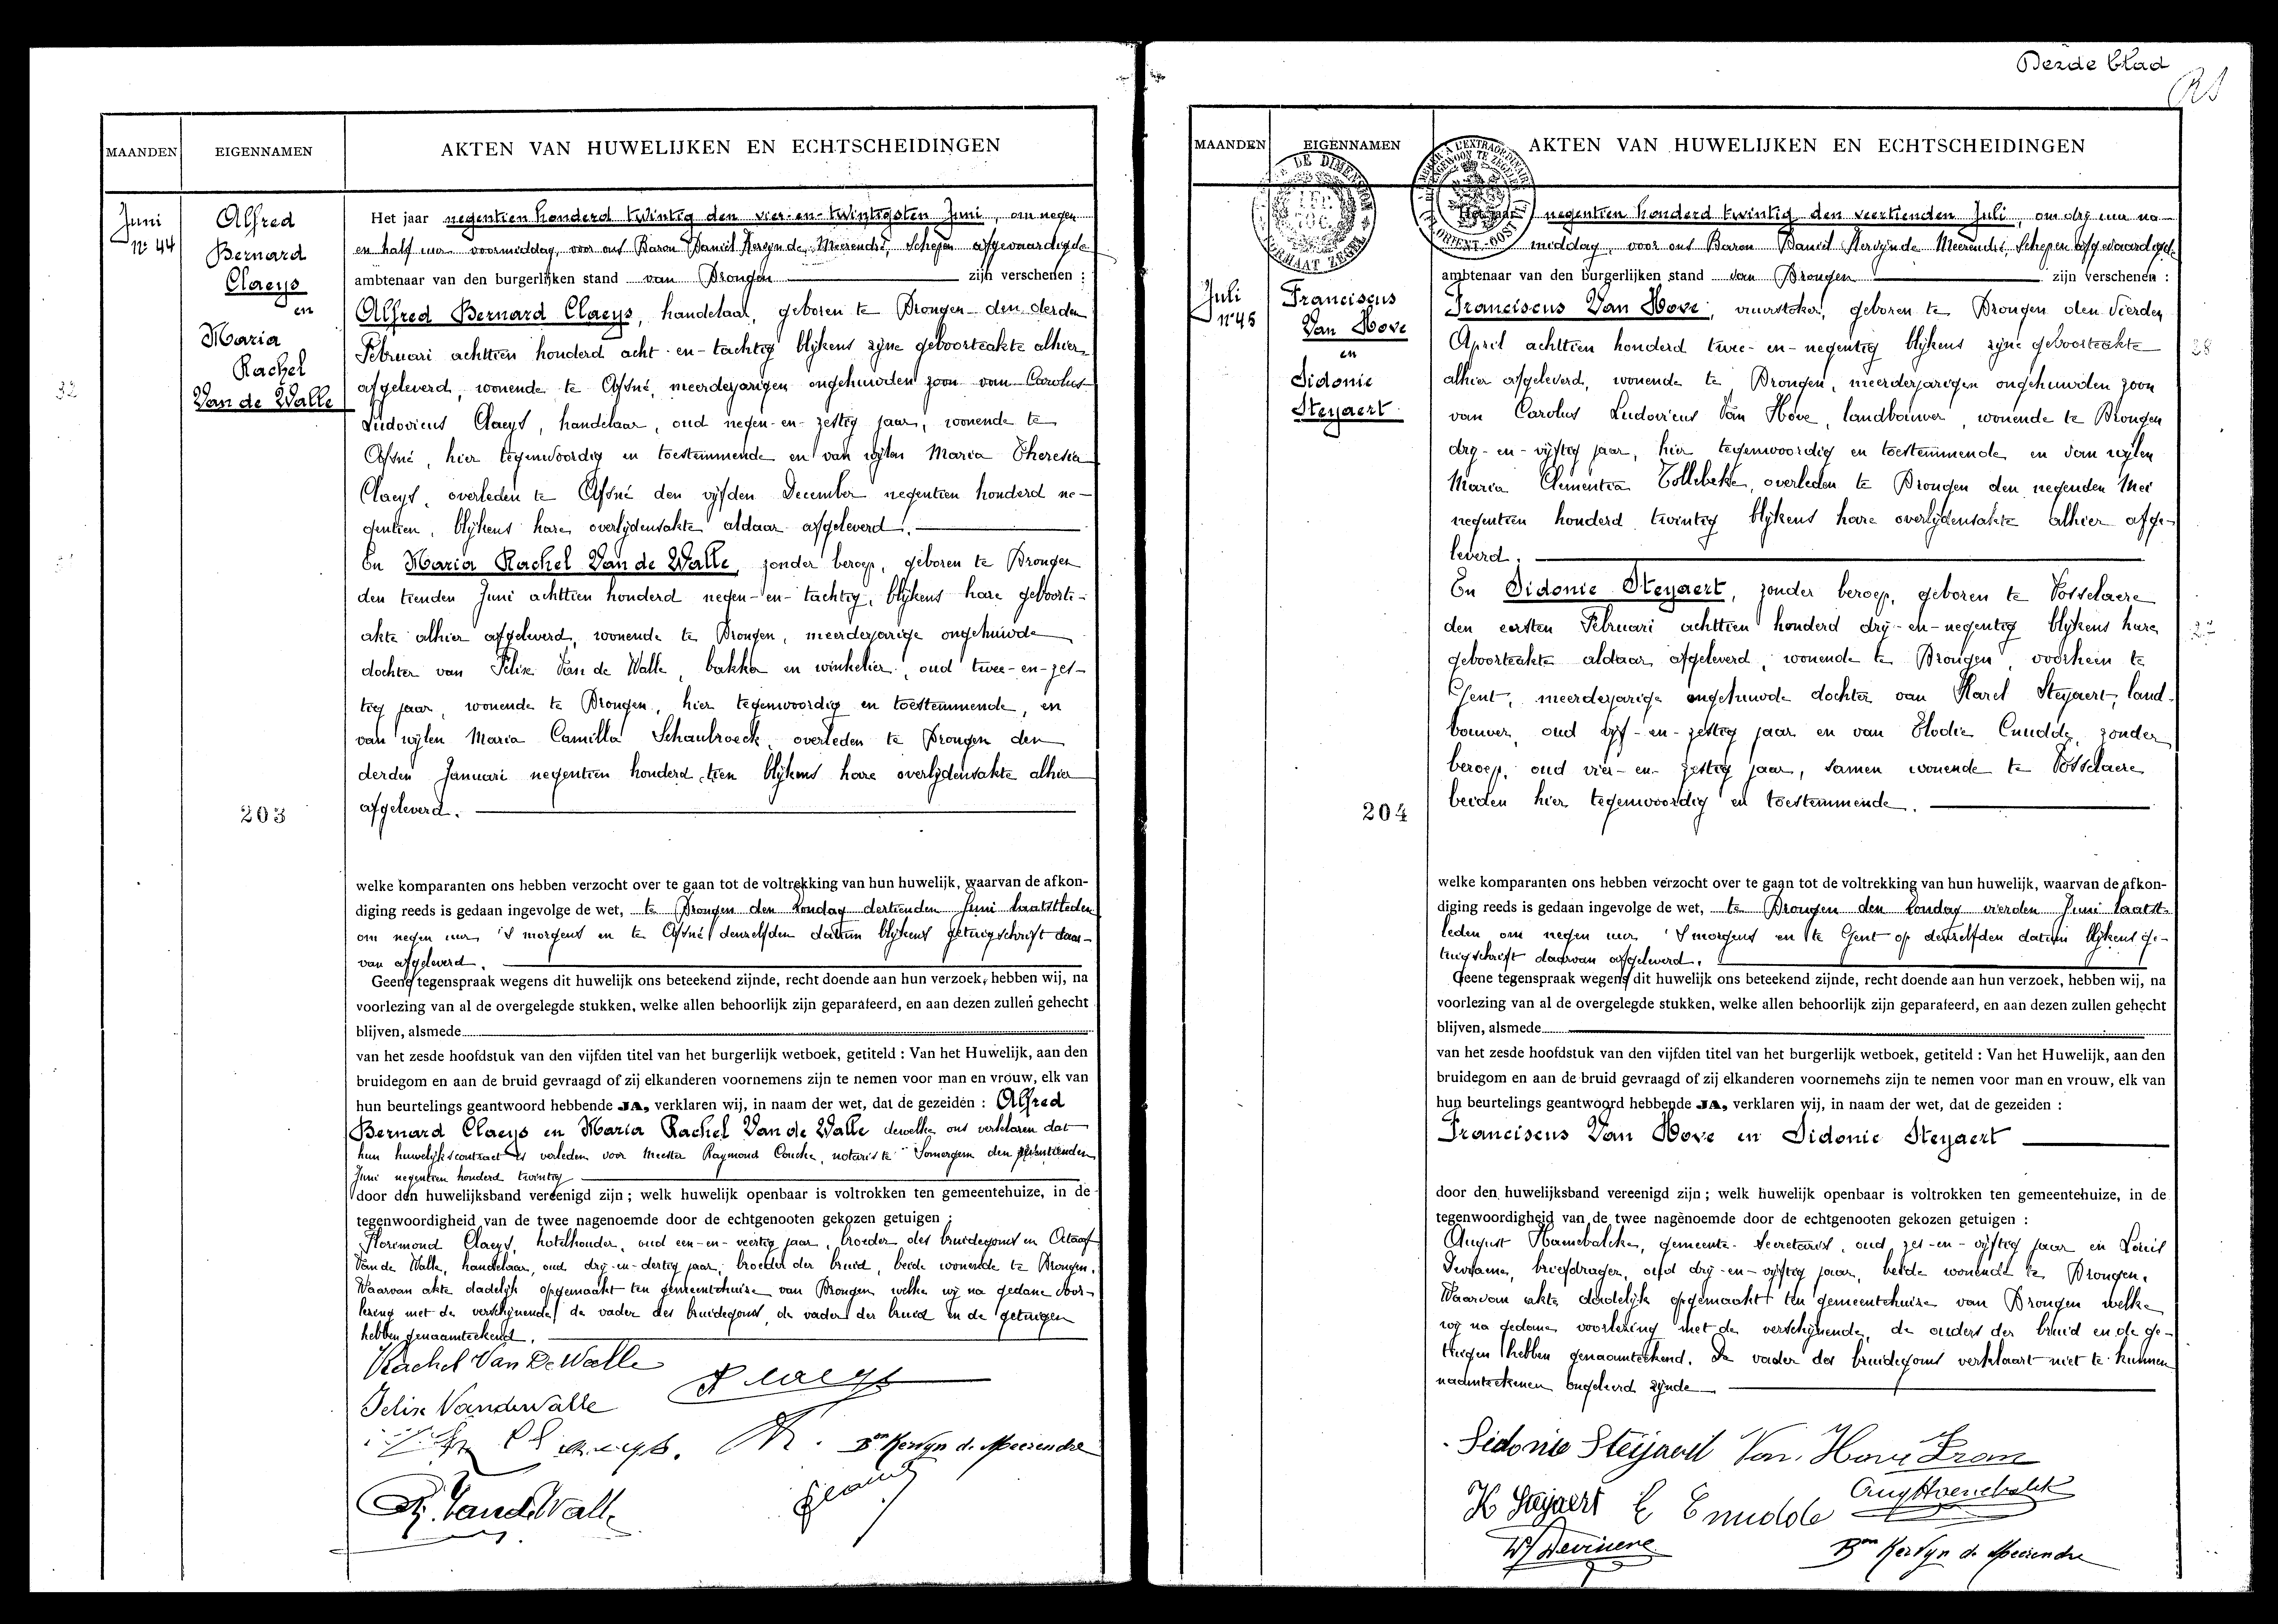 MAANDEN
EIGENNAMEN
AKTEN VAN HUWELIJKEN EN ECHTSCHEIDINGEN
Juni
n° 44
Alfred
Bernard
Claeys
en
Maria
Rachel
Van de Walle
203
Het jaar negentien honderd twintig den vier-en-twintigsten Juni, om negen
en half uur voormiddag, voor ons Baron Daniël Kervyn de Meerendré, Schepen afgevaardigde
ambtenaar van den burgerlijken stand van Drongen zijn verschenen :
Alfred Bernard Claeys, handelaar, geboren te Drongen den derden
Februari achttien honderd acht-en-tachtig blijkens zyne geboorteakte alhier
afgeleverd, wonende te Afsné, meerderjarigen ongehuwden zoon van Carolus
Ludovicus Claeys, handelaar, oud negen-en-zestig jaar, wonende te
Afsné, hier tegenwoordig en toestemmende en van wylen Maria Theresia
Claeys, overleden te Afsné den vyfden December negentien honderd ne-
gentien, blykens hare overlydensakte aldaar afgeleverd.
En Maria Rachel Van de Walle, zonder beroep, geboren te Drongen
den tienden Juni achttien honderd negen-en-tachtig, blykens hare geboorte-
akte alhier afgeleverd, wonende te Drongen, meerderjarige ongehuwde
dochter van Felix Van de Walle, bakker en winkelier, oud twee-en-zes-
tig jaar, wonende te Drongen, hier tegenwoordig en toestemmende, en
van wylen Maria Camilla Schaubroeck, overleden te Drongen den
derden Januari negentien honderd tien blykens hare overlydensakte alhier
afgeleverd.
welke komparanten ons hebben verzocht over te gaan tot de voltrekking van hun huwelijk, waarvan de afkon-
diging reeds is gedaan ingevolge de wet, te Drongen den Zondag dertienden Juni laatstleden
om negen uur 's morgens en te Afsné denzelfden datum blykens getuigschrift daar-
van afgeleverd.
Geene tegenspraak wegens dit huwelijk ons beteekend zijnde, recht doende aan hun verzoek, hebben wij, na
voorlezing van al de overgelegde stukken, welke allen behoorlijk zijn geparafeerd, en aan dezen zullen gehecht
blijven, alsmede
van het zesde hoofdstuk van den vijfden titel van het burgerlijk wetboek, getiteld : Van het Huwelijk, aan den
bruidegom en aan de bruid gevraagd of zij elkanderen voornemens zijn te nemen voor man en vrouw, elk van
hun beurtelings geantwoord hebbende JA, verklaren wij, in naam der wet, dat de gezeiden : Alfred
Bernard Claeys en Maria Rachel Van de Walle dewelke ons verklaren dat
hun huwelykscontract is verleden voor Meester Raymond Couche, notaris te Somergem den
Juni negentien honderd twintig
door den huwelijksband vereenigd zijn ; welk huwelijk openbaar is voltrokken ten gemeentehuize, in de
tegenwoordigheid van de twee nagenoemde door de echtgenooten gekozen getuigen :
Florimond Claeys, hotelhouder, oud een-en-veertig jaar, broeder des bruidegoms en Octaaf
Van de Walle, handelaar, oud dry-en-dertig jaar, broeder der bruid, beide wonende te Drongen.
Waarvan akte dadelyk opgemaakt ten gemeentehuize van Drongen welke wy na gedane voor-
lezing met de verschynende, de vader des bruidegoms, de vader der bruid en de getuigen
hebben genaamteekend.
Rachel Van De Walle
A Claeys
Felix Vandewalle
Bon Kervyn de Meerendre
Vande Walle
Derde blad
MAANDEN
EIGENNAMEN
AKTEN VAN HUWELIJKEN EN ECHTSCHEIDINGEN
Juli
n° 45
Franciscus
Van Hove
en
Sidonie
Steyaert
204
Het jaar negentien honderd twintig den veertienden Juli, om dry uur na-
middag, voor ons Baron Daniël Kervyn de Meerendré, Schepen afgevaardigde
ambtenaar van den burgerlijken stand van Drongen zijn verschenen :
Franciscus Van Hove, vuurstoker, geboren te Drongen den vierden
April achttien honderd twee-en-negentig blykens zyne geboorteakte
alhier afgeleverd, wonende te Drongen, meerderjarigen ongehuwden zoon
van Carolus Ludovicus Van Hove, landbouwer, wonende te Drongen
dry-en-vyftig jaar, hier tegenwoordig en toestemmende en van wylen
Maria Clementia Tollebeke, overleden te Drongen den negenden Mei
negentien honderd twintig blykens hare overlydensakte alhier afge-
leverd.
En Sidonie Steyaert, zonder beroep, geboren te Vosselaere
den eersten Februari achttien honderd dry-en-negentig blykens hare
geboorteakte aldaar afgeleverd, wonende te Drongen, voorheen te
Gent, meerderjarige ongehuwde dochter van Karel Steyaert, land-
bouwer, oud vyf-en-zestig jaar en van Elodie Cnudde, zonder
beroep, oud vier-en-zestig jaar, samen wonende te Vosselaere
beiden hier tegenwoordig en toestemmende.
welke komparanten ons hebben verzocht over te gaan tot de voltrekking van hun huwelijk, waarvan de afkon-
diging reeds is gedaan ingevolge de wet, te Drongen den Zondag vierden Juni laatst-
leden om negen uur 's morgens en te Gent op denzelfden datum blykens ge-
tuigschrift daarvan afgeleverd.
Geene tegenspraak wegens dit huwelijk ons beteekend zijnde, recht doende aan hun verzoek, hebben wij, na
voorlezing van al de overgelegde stukken, welke allen behoorlijk zijn geparafeerd, en aan dezen zullen gehecht
blijven, alsmede
van het zesde hoofdstuk van den vijfden titel van het burgerlijk wetboek, getiteld : Van het Huwelijk, aan den
bruidegom en aan de bruid gevraagd of zij elkanderen voornemens zijn te nemen voor man en vrouw, elk van
hun beurtelings geantwoord hebbende JA, verklaren wij, in naam der wet, dat de gezeiden :
Franciscus Van Hove en Sidonie Steyaert
door den huwelijksband vereenigd zijn ; welk huwelijk openbaar is voltrokken ten gemeentehuize, in de
tegenwoordigheid van de twee nagenoemde door de echtgenooten gekozen getuigen :
August Haenebalcke, gemeente-secretaris, oud zes-en-vyftig jaar en Louis
briefdrager, oud dry-en-vyftig jaar, beide wonende te Drongen.
Waarvan akte dadelyk opgemaakt ten gemeentehuize van Drongen welke
wy na gedane voorlezing met de verschynende, de ouders der bruid en de ge-
tuigen hebben genaamteekend. De vader des bruidegoms verklaart niet te kunnen
naamteekenen ongeleerd zynde
Sidonie Steijaert Van Hove Fran
K Steyaert E Cnudde
Bon Kervyn de Meerendre